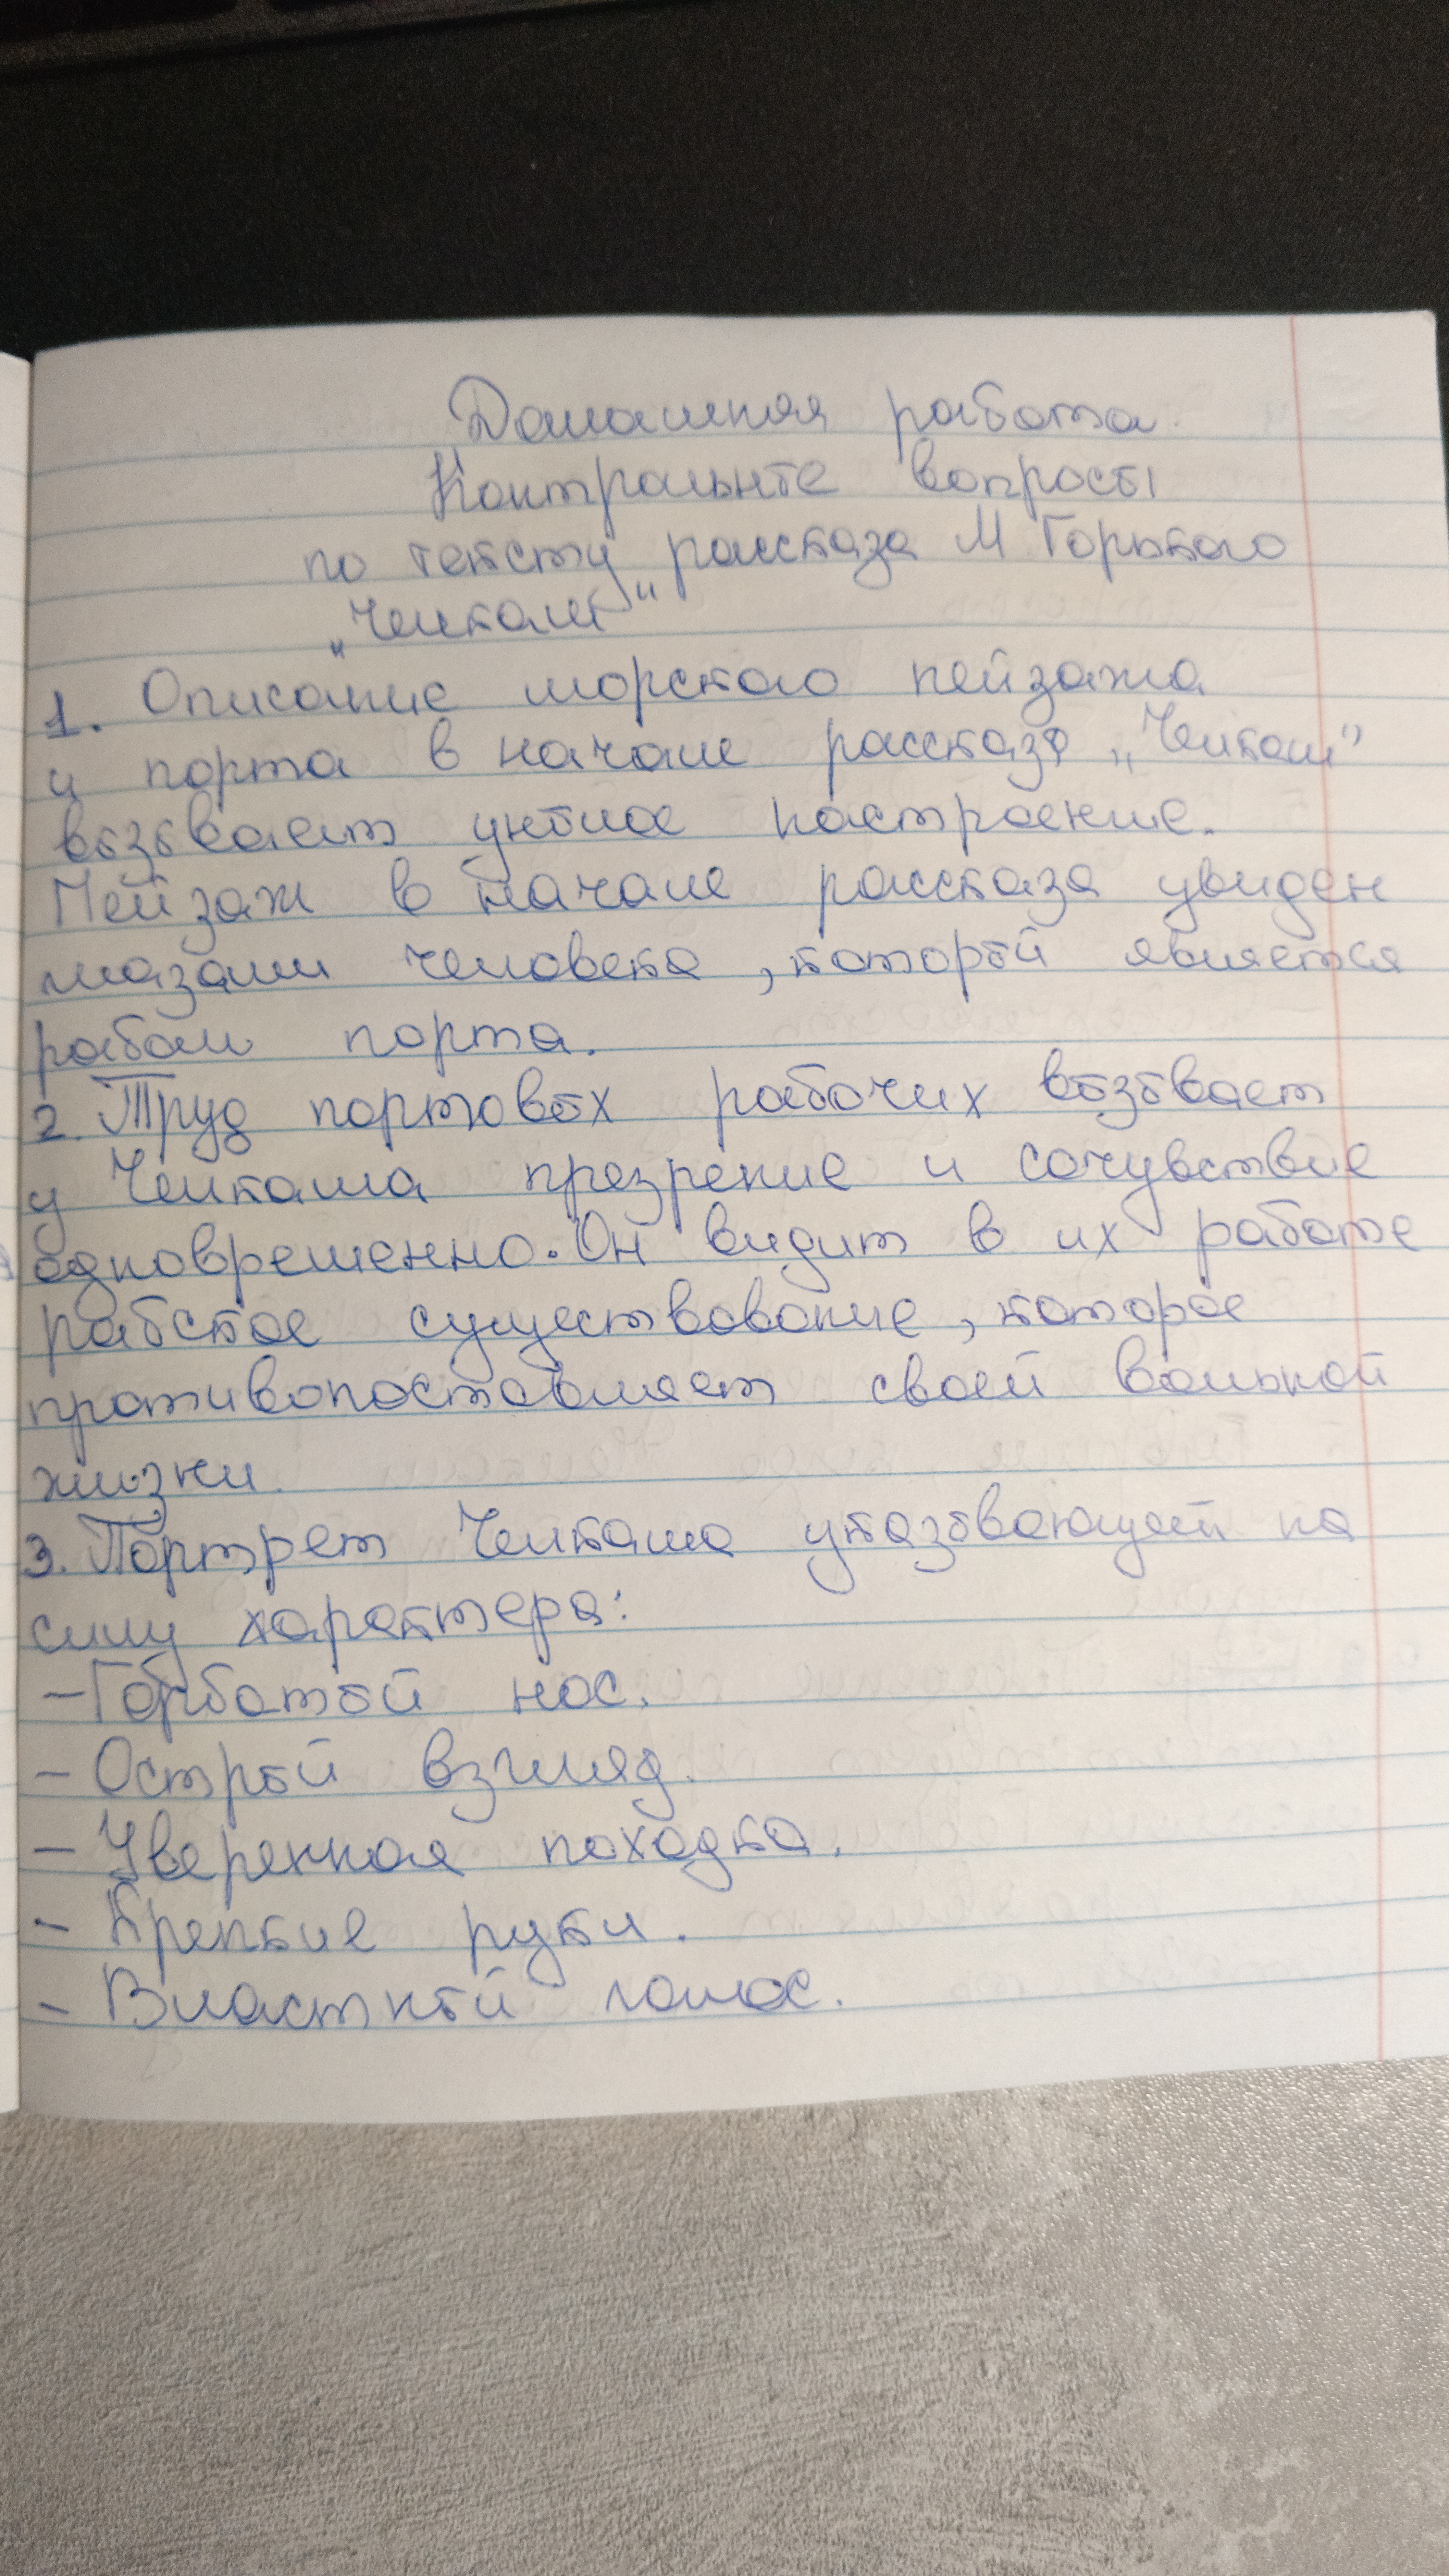 Домашняя работа.
Контрольнте вопросы
по тексту рассказа М Горького
„Челкаш"
1. Описание морского пейзажа
и порта в начале рассказа „Челкаш"
вызывает унылое настроение.
Пейзаж в начале рассказа увиден
глазами человека, который является
рабом порта.
2. Труд портовых рабочих вызывает
у Челкаша презрение и сочувствие
одновременно. Он видит в их работе
рабское существование, которое
противопоставляет своей вольной
жизни.
3. Портрет Челкаша указывающей на
силу характера:
- Горбатый нос.
- Острый взгляд.
- Уверенная походка.
- Крепкие руки.
- Властный голос.